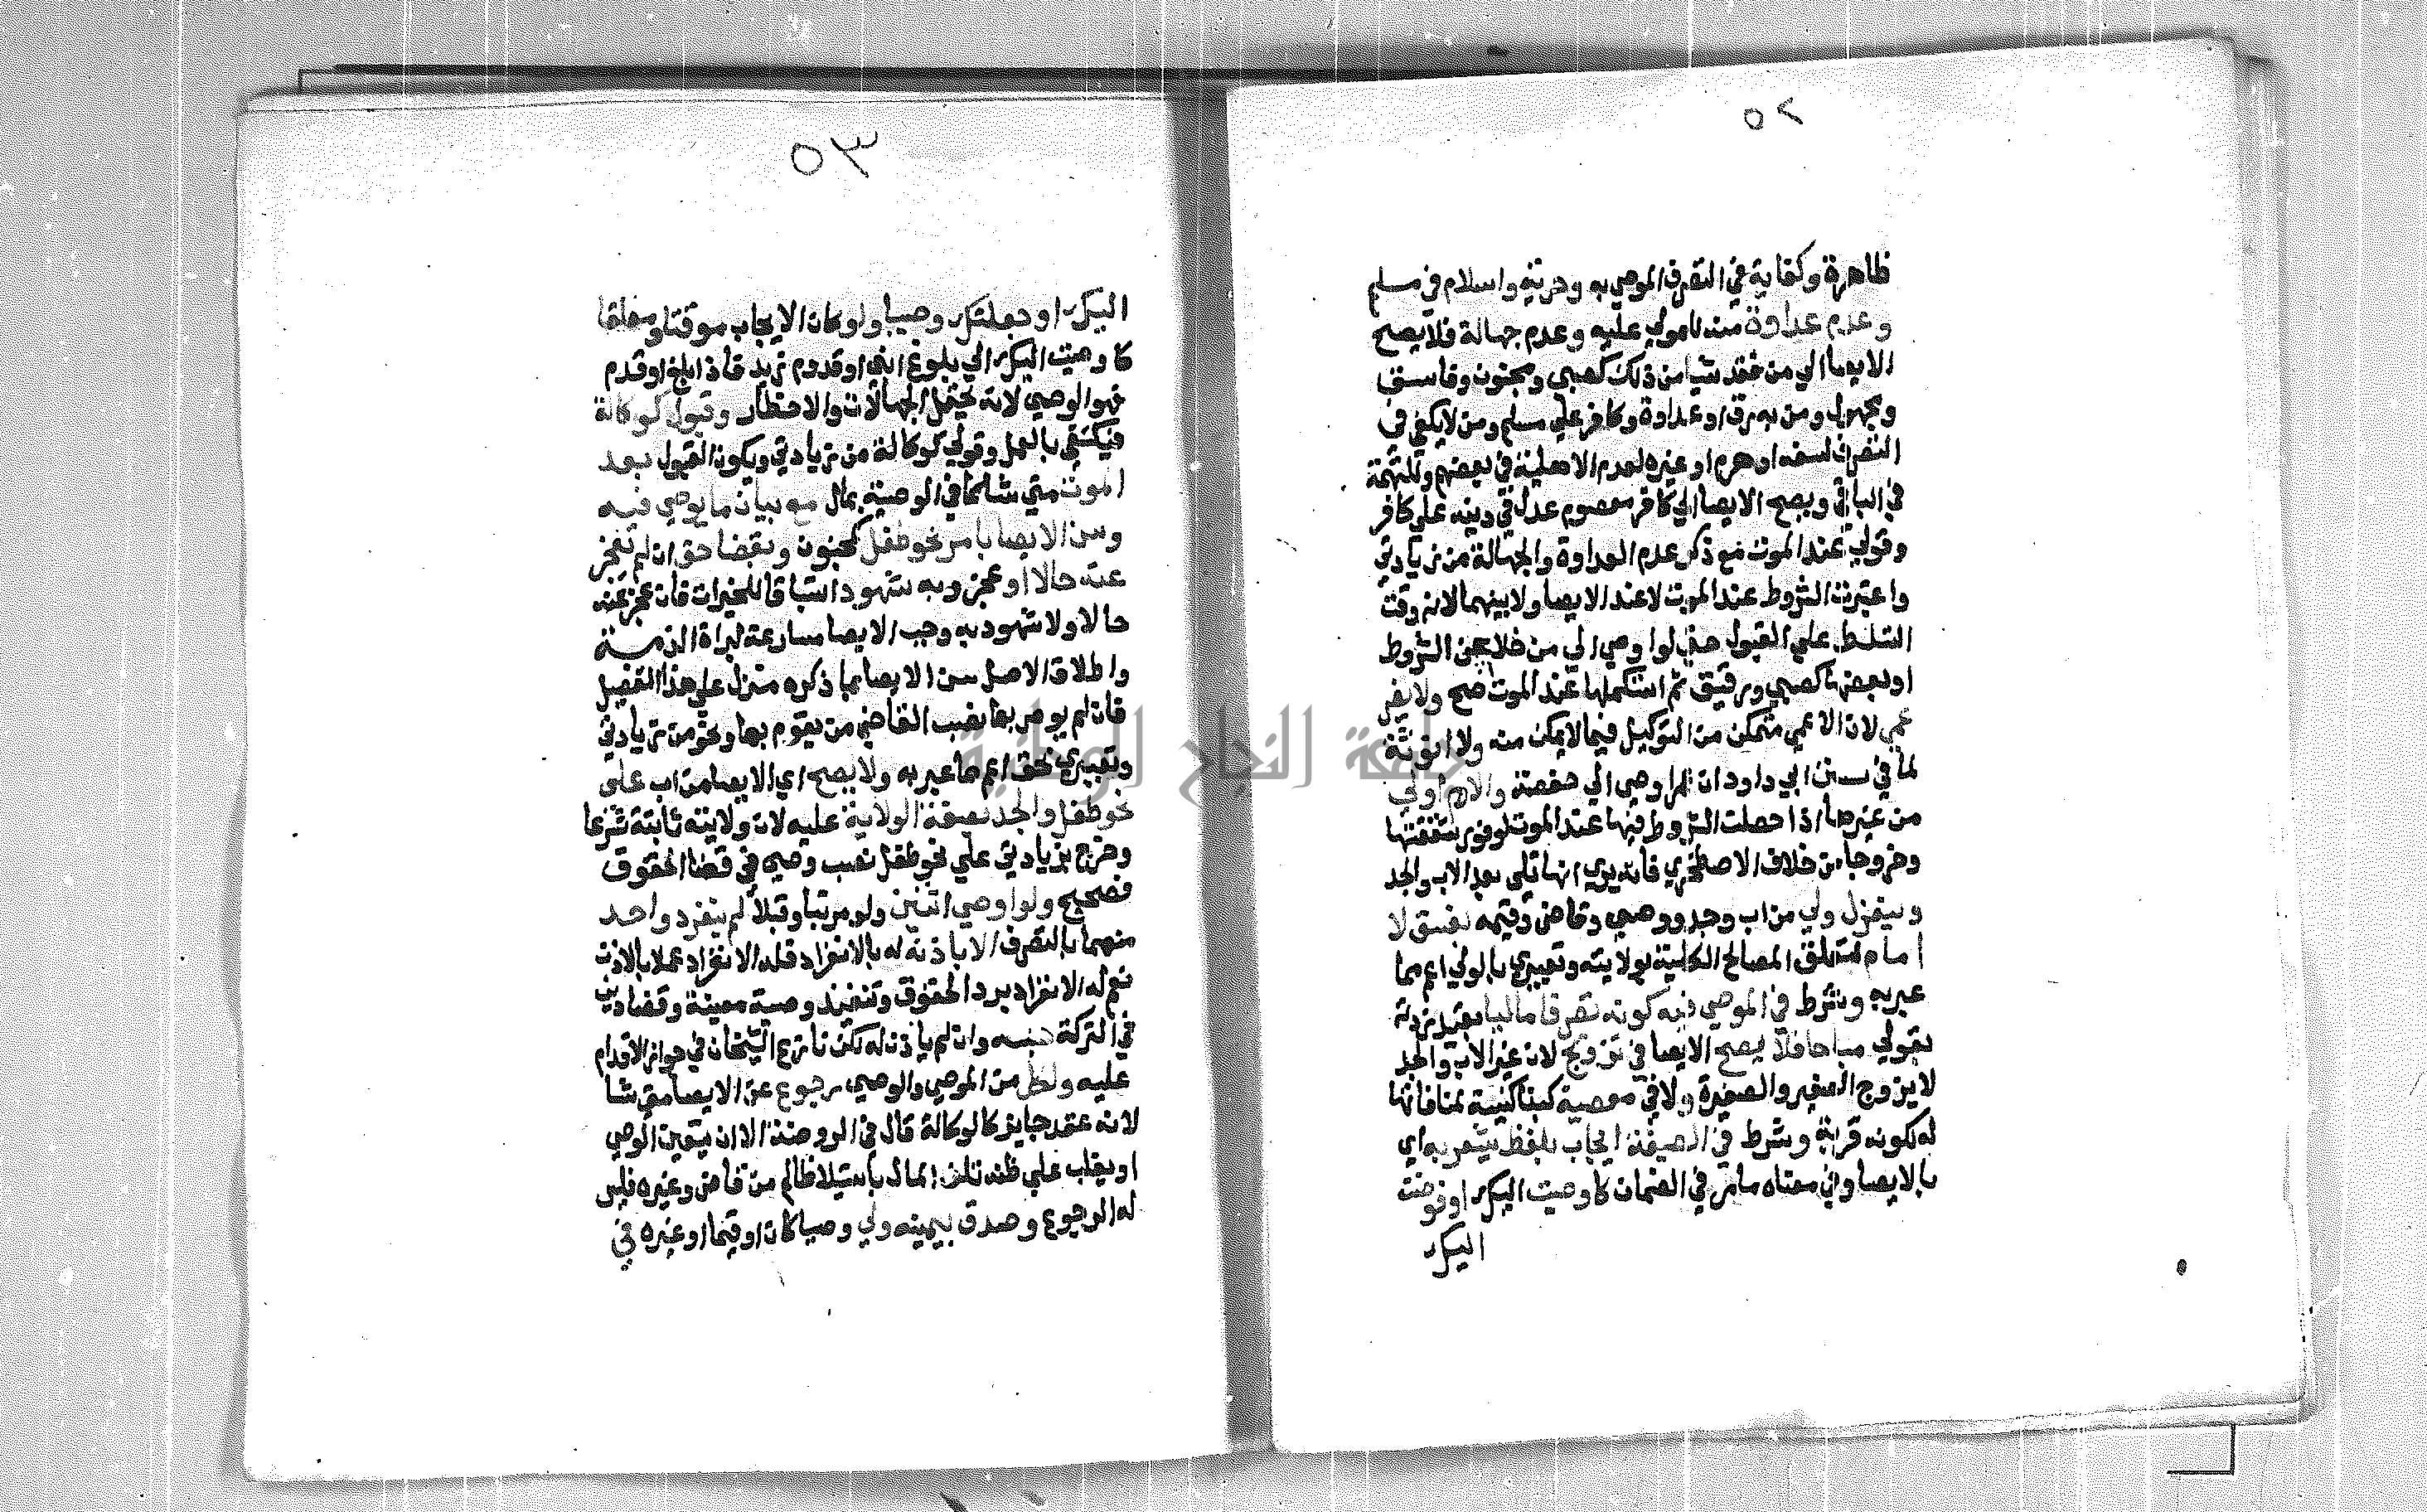 ٥٢
ظاهرة وكفاية في التصرف الموصي به وحرية واسلام في مسلم
وعدم عداوة منه للمولي عليه وعدم جهالة فلا يصح
الايصا الي من فقد شيا من ذلك كصبي ومجنون وفاسق
ومجهول ومن به رق او عداوة وكافر علي مسلم ومن لا يكفي في
التصرف لسفه او هرم او غيره لعدم الاهلية في بعضهم وللتهمة
في الباقي ويصح الايصا الي كافر معصوم عدل في دينه علي كافر
وقولي عند الموت مع ذكر عدم العداوة والجهالة من زيادتي
واعتبرت الشروط عند الموت لا عند الايصا ولا بينهما لانه وقت
التسلط علي القبول حتي لو اوصي الي من خلا عن الشروط
او بعضها كصبي ورقيق ثم استكملها عند الموت صح ولا يضر
عمي لان الاعمي متمكن من التوكيل فيما لا يمكن منه ولا انوثة
لما في سنن ابي داود ان عمر اوصي الي حفصة والام اولي
من غيرها اذا حصلت الشروط فيها عند الموت لوفور شفقتها
وخروجا من خلاف الاصطخري فانه يري انها تلي بعد الاب والجد
وينعزل ولي من اب وجد ووصي وقاض وقيمه بفسق لا
امام لتعلق المصالح الكلية بولايته وتعبيري بالولي اعم مما
عبر به وشرط في الموصي فيه كونه تصرفا ماليا بقيد زدته
بقولي مباحا فلا يصح الايصا في تزويج لان غير الاب والجد
لا يزوج الصغير والصغيرة ولا في معصية كبنا كنيسة لمنافاتها
له لكونه قربة وشرط في الصيغة ايجاب بلفظ يشعر به اي
بالايصا وفي معناه ما مر في الضمان كاوصيت اليك او فوضت
اليك
٥٣
اليك او جعلتك وصيا ولو كان الايجاب موقتا ومعلقا
كاوصيت اليك الي بلوغ ابني او قدوم زيد فاذا بلغ او قدم
فهو الوصي لانه يحتمل الجهالات والاخطار وقبول كوكالة
فيكتفي بالعمل وقولي كوكالة من زيادتي ويكون القبول بعد
الموت متي شا كما في الوصية بمال مع بيان ما يوصي فيه
وسن الايصا بامر نحو طفل كمجنون وبقضا حق ان لم يعجز
عنه حالا او عجز وبه شهود استباقا للخيرات فان عجز عنه
حالا ولا شهود به وجب الايصا مسارعة لبراة الذمة
واطلاق الاصل سن الايصا بما ذكره منزل علي هذا التفصيل
فان لم يوص بها نصب القاضي من يقوم بها ونحو من زيادتي
وتعبيري بحق اعم مما عبر به ولا يصح اي الايصا من اب على
نحو طفل والجد بصفة الولاية عليه لان ولايته ثابتة شرعا
وخرج بزيادتي علي نحو طفل نصب وصي في قضا الحقوق
فصحيح ولو اوصي اثنين ولو مرتبا وقبلا لم ينفرد واحد
منهما بالتصرف الا باذنه له بالانفراد فله الانفراد عملا بالاذن
نعم له الانفراد برد الحقوق وتنفيذ وصية معينة وقضا دين
في التركة جنسه وان لم ياذن له لكن نازع الشيخان في جواز الاقدام
عليه ولكل من الموصي والوصي رجوع عن الايصا متي شا
لانه عقد جايز كالوكالة قال في الروضة الا ان يتعين الوصي
او يغلب علي ظنه تلف المال باستيلا ظالم من قاض وغيره فليس
له الرجوع وصدق بيمينه ولي وصيا كان او قيما او غيره في